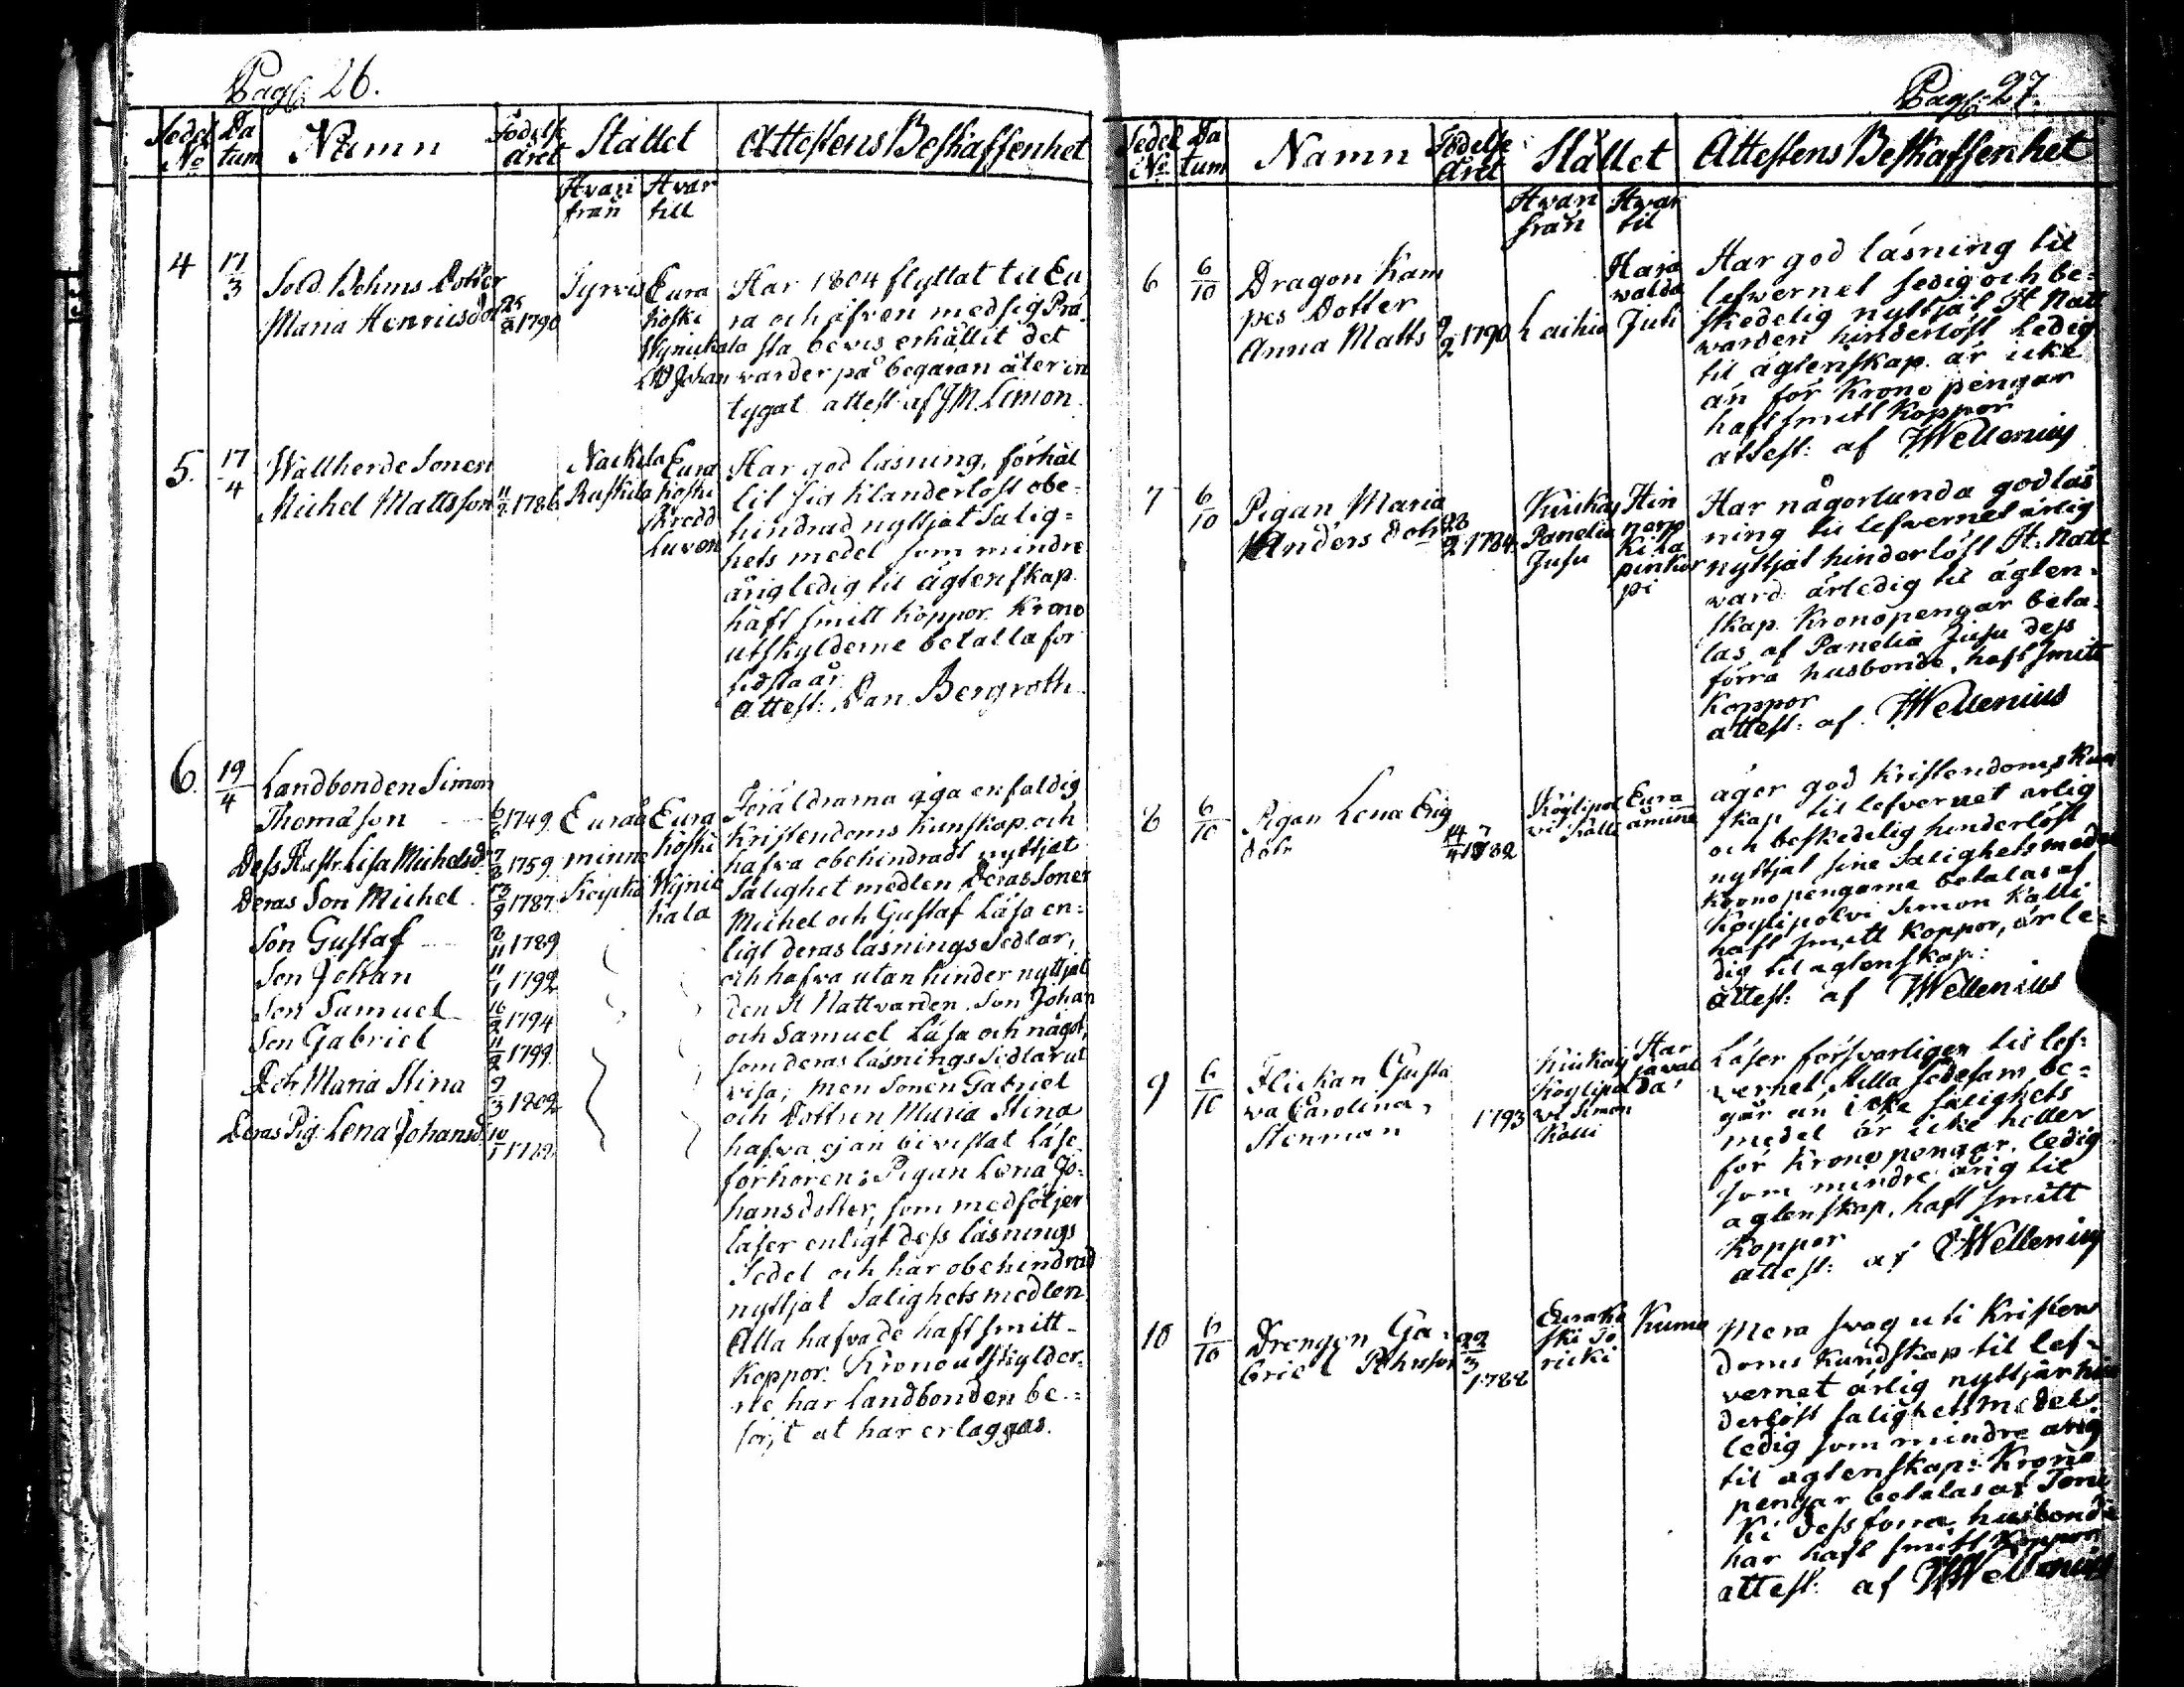 Pag: 26.
Sedel Da Namn Födelse Stället Attestens Beskaffenhet
No tum året
Hvari Hvar
från till
4 17/3 Sold. Bohms Dotter
Maria Henricsdotr 1790
Tyrvis Eura
koski
Wynickala
Johan
Har 1804 flyttat til Eu
ra och äfven med sig Prä
sta bevis erhållit det
varder på begäran åter in
tygat attest: af JM Limon
5. 17/4 Wallherde Sonen
Michel Mattsson 11/2 1786
Nackila Eura
Ruskila koski
Har god läsning, förhål
lit sig klanderlöst obe=
hindrad nyttjat Salig=
hets medel som mindre
årig ledig til ägtenskap.
haft smitt koppor. Krono
utskylderne betalta för
sidsta år
Attest: Dan Bergroth
6. 19/4 Landbonden Simon
Thomasson 1749 Euraå Eura
Dess Hustr. Lisa Michelsd. 1759 minne koski
Deras Son Michel 1787 Wynic
kala
Son Gustaf 1789
Son Johan 1792
Son Samuel 16/2 1794
Son Gabriel 11/2 1799
Dotr Maria Stina 9/3 1802
Deras Pig. Lena Johansd.
Föräldrarna äga enfaldig
Kristendoms kunskap och
hafva obehindradt nyttjat
Salighet medlen Deras Söner
Michel och Gustaf Läsa en=
ligt deras läsnings Sedlar,
och hafva utan hinder nyttjat
den H Nattvarden. Son Johan
och Samuel Läsa och något,
som deras läsnings Sedlar ut
visa; men Sonen Gabriel
och Dottren Maria Stina
hafva ej än bivistat Läse
förhören; Pigan Lena Jo=
hansdotter, som medföljer
läser enligt dess läsnings
Sedel och har obehindrad
nyttjat Salighets medlen.
Alla hafva de haft smitt
koppor. Krono utskylder=
ne har Landbonden be=
sörjt at här erläggas.
Pag: 27.
Sedel Da Namn Födelse Stället Attestens Beskaffenhet
No tum året
Hvari Hvar
från til
6 6/10 Dragon Kam
pes Dotter
Anna Matts 9/2 1790 Laihia
Harja
walda
Juti
Har god läsning til
lefwernet sedig och be=
skedelig nyttjat H. Natt
varden hinderlöst Ledig
til ägtenskap. är icke
än för Krono pengar
haft smitt koppor
attest: af Wellenius
7 6/10 Pigan Maria
Anders dotr 1784
Kiukais
Panelia
Jusu
Hin
nerp
Har någorlunda god läs
ning til lefvernet ärlig
nyttjat hinderlöst H. Natt
vard är ledig til ägten=
skap. Kronopengar beta=
las af Panelia Jusu dess
förra husbonde, haft smitt
koppor
attest: af Wellenius
8 6/10 Pigan Lena Eric
dotr 1782
Köylipol Eura
vi Källi åminne
äger god Kristendoms kun
skap til lefvernet ärlig
och beskedelig hinderlöst
nyttjat sine Salighets medel
Kronopengarna betalas af
Köylipolvi Simon Källi
haft smitt koppor, är le=
dig til ägtenskap:
attest: af Wellenius
9 6/10 Flickan Gusta
va Carolina
Stenman 1793
Kiukais Har
Köylipol javal
vi Simon da
Källi
Läser försvarligen til lef=
vernet stilla sedesam be=
går än icke salighets
medel är icke heller
för Krono pengar. ledig
som mindre årig til
ägtenskap. haft smitt
koppor
attest: af Wellenius
10 6/10 Drengen Ga=
briel Johnsson 22/3 1788
Eurako Kumo
ski
Mera svag uti Kristen
doms kundskap til lef=
vernet ärlig nyttjar hin
derlöst salighets medel
ledig som mindre årig
til ägtenskap: Krono
pengar betalas af
ki dess förra husbonde
har haft smitt koppor
attest: af Wellenius